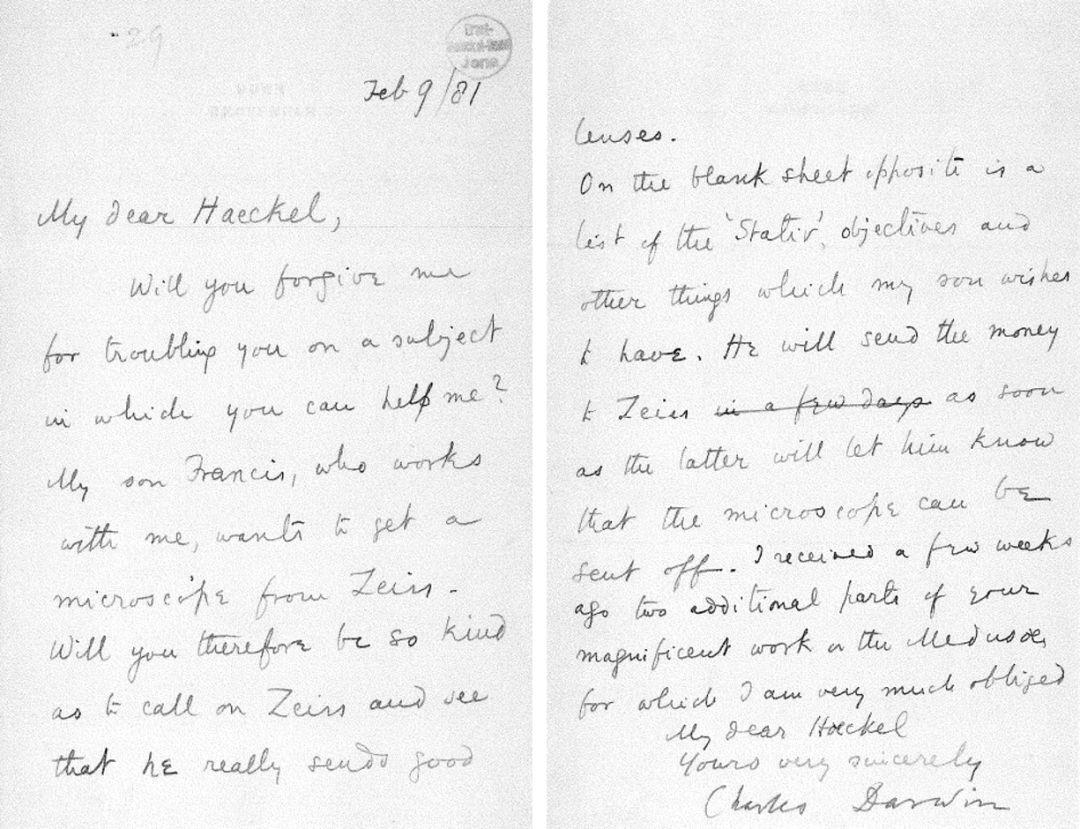 29
Jena
Feb 9/81
My dear Haeckel,
Will you forgive me
for troubling you on a subject
in which you can help me?
My son Francis, who works
with me, wants to get a
microscope from Zeiss.
Will you therefore be so kind
as to call on Zeiss and see
that he really sends good
lenses.
On the blank sheet opposite is a
list of the 'Stativ', objectives and
other things which my son wishes
to have. He will send the money
to Zeiss in a few days as soon
as the latter will let him know
that the microscope can be
sent off. I received a few weeks
ago two additional parts of your
magnificent work on the Medusae,
for which I am very much obliged
My dear Haeckel
Yours very sincerely
Charles Darwin